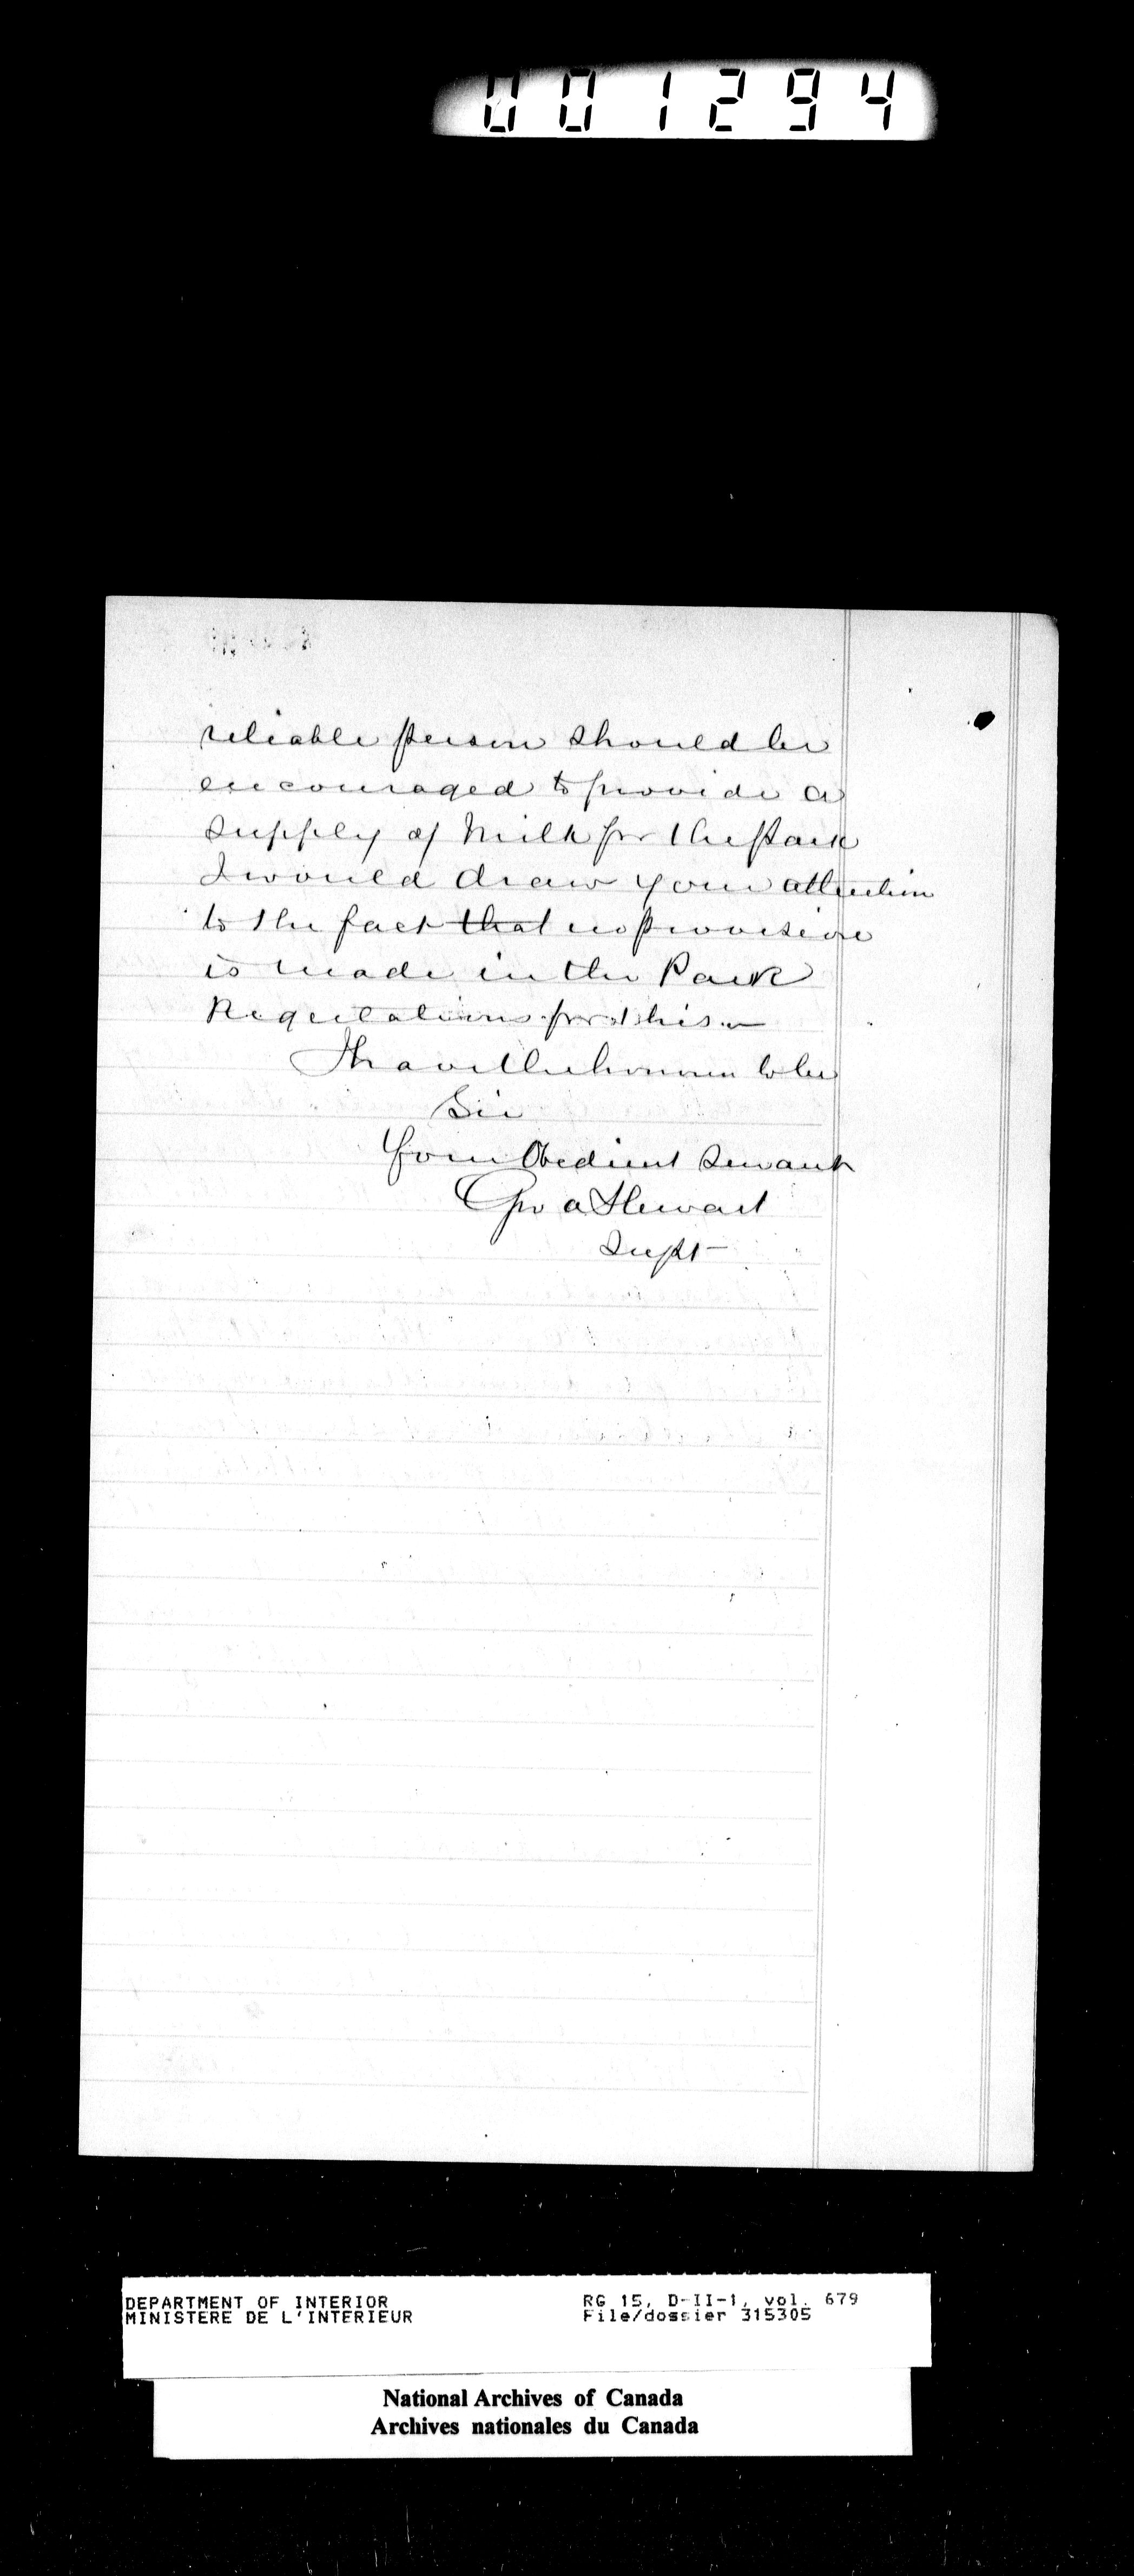 001294
reliable person should be
encouraged to provide a
supply of Milk for the Park
I would draw your attention
to the fact that no provision
is made in the Park
Regulations for this.—
I have the honour to be
Sir
Your Obedient Servant
Geo A Stewart
Supt
DEPARTMENT OF INTERIOR RG 15, D-II-1, vol. 679
MINISTERE DE L'INTERIEUR File/dossier 315305
National Archives of Canada
Archives nationales du Canada